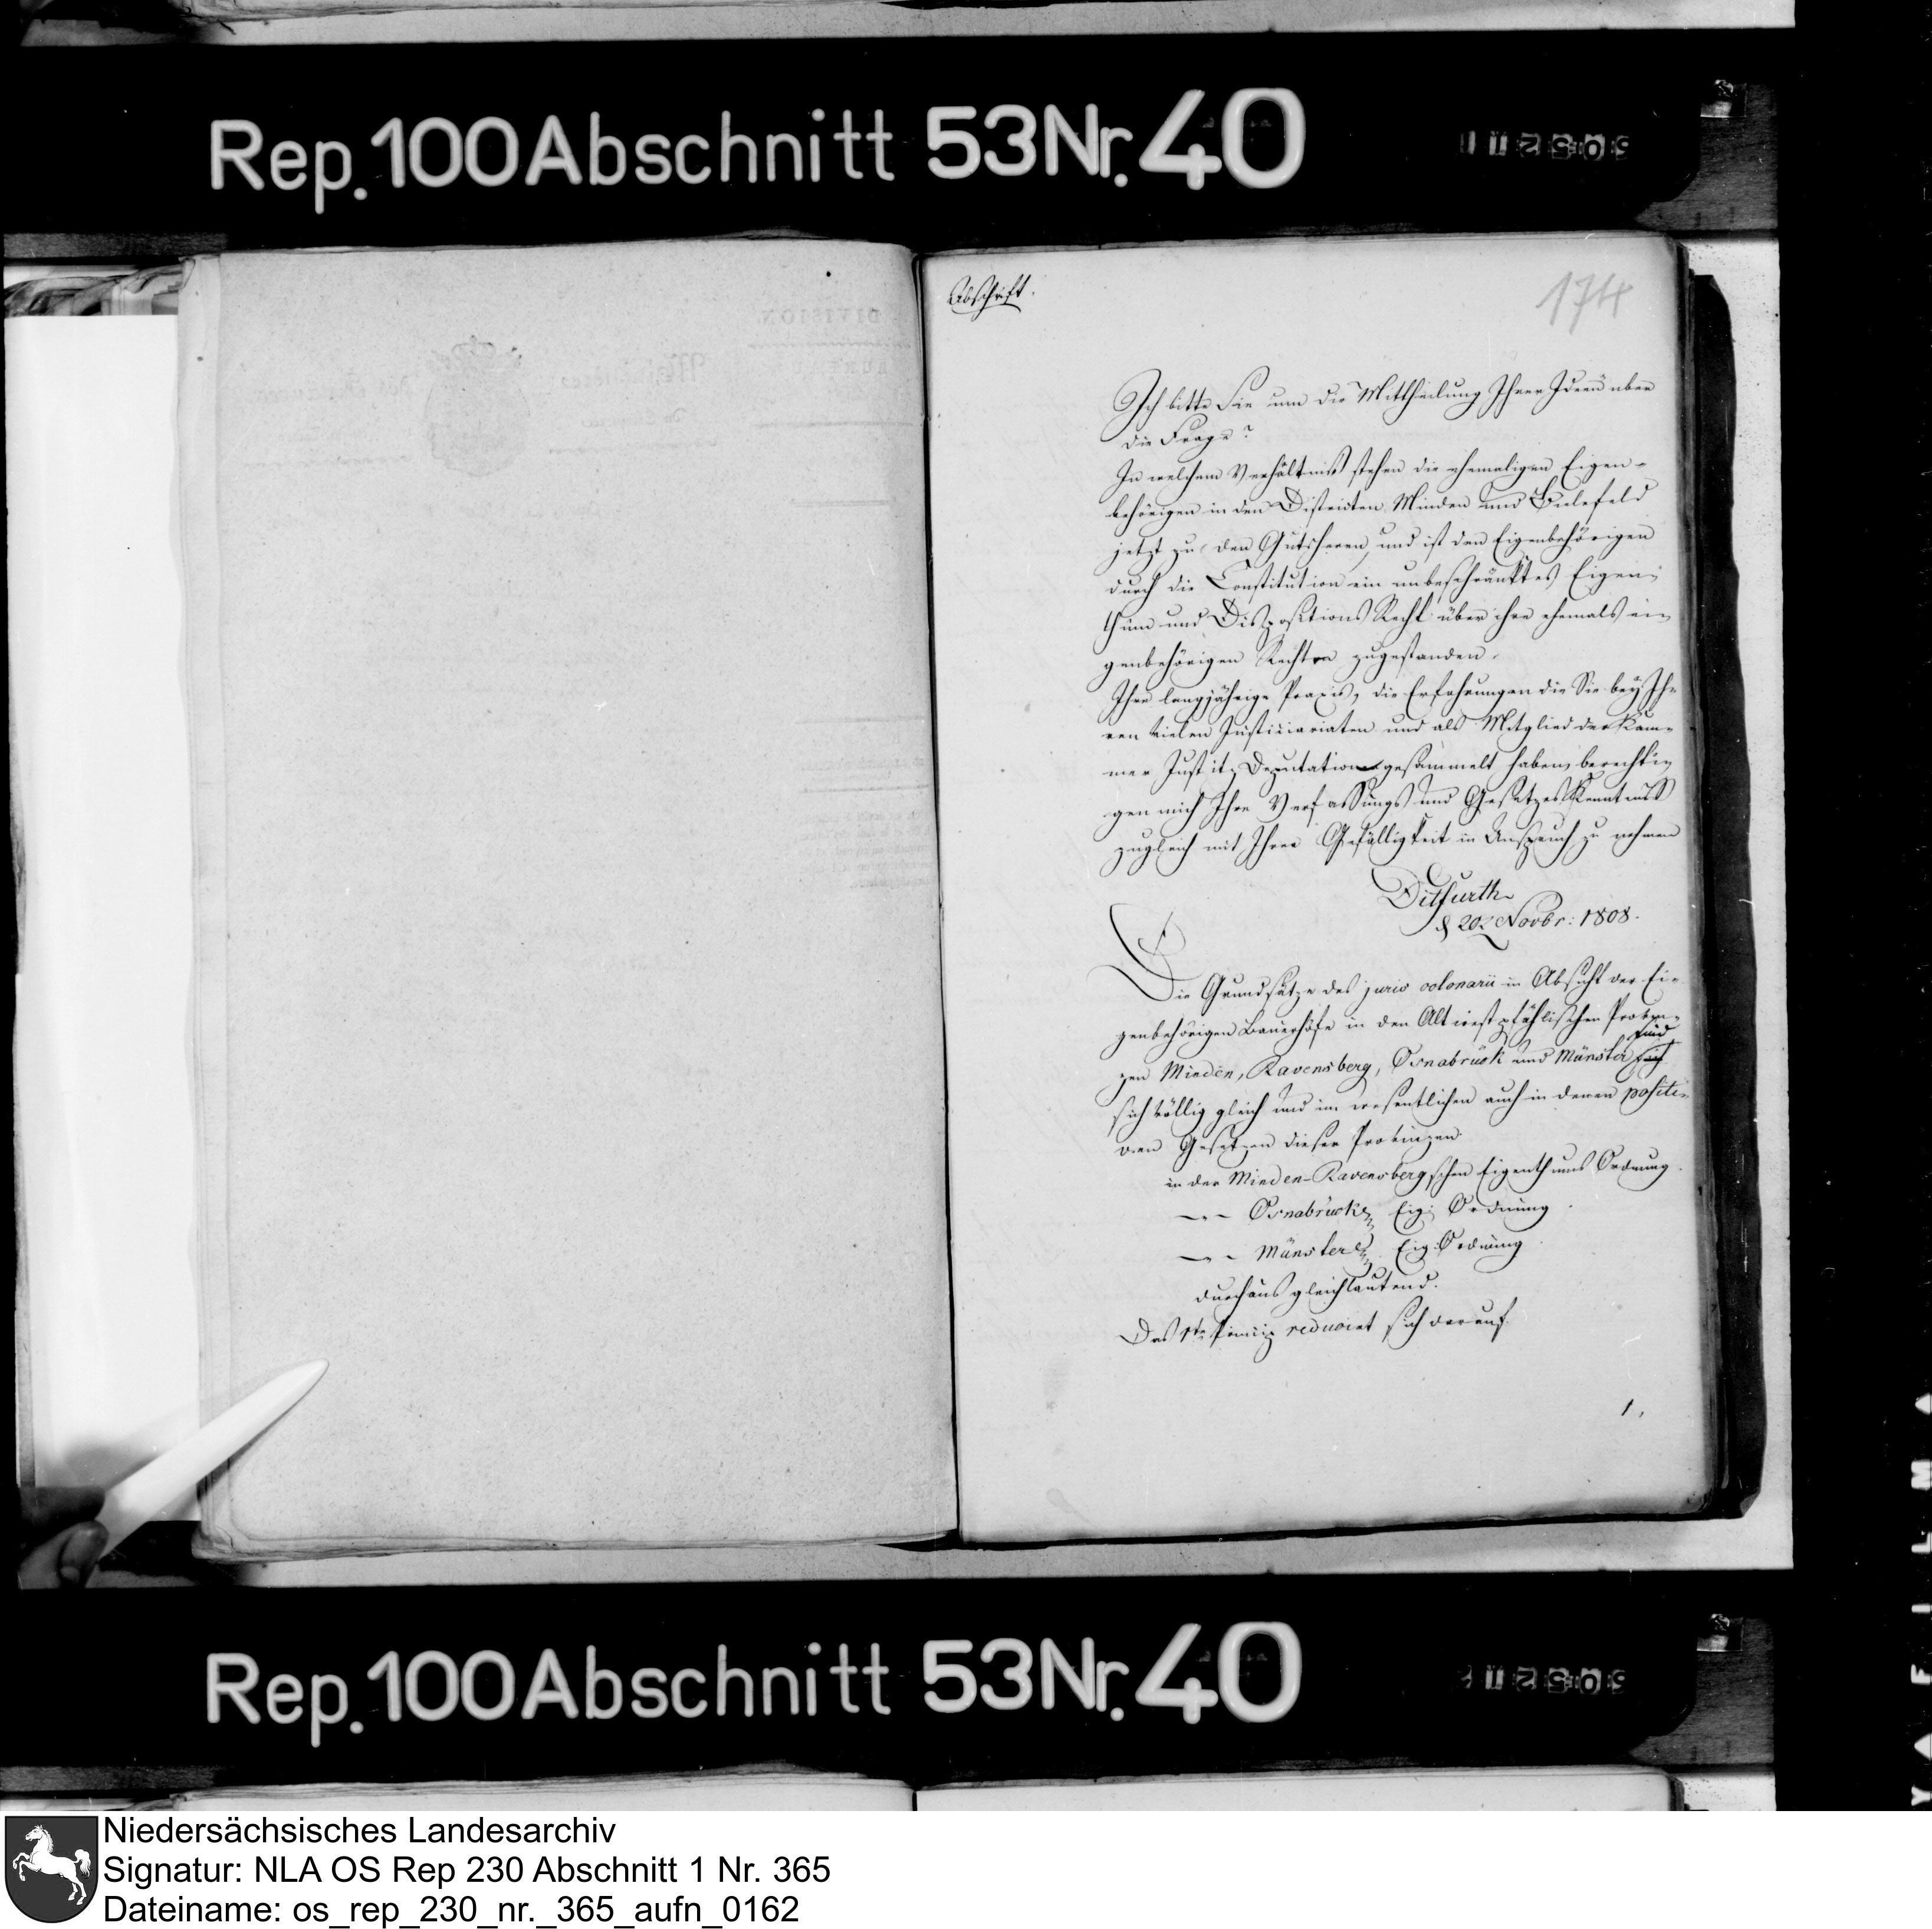 Rep. 100 Abschnitt 53 Nr. 40
Abschrift.
174
Ich bitte Sie um die Mittheilung Ihrer Ideen über
die Frage?
In welchem Verhältniß stehen die ehemaligen Eigen-
behörigen in den Districten Minden und Bielefeld
jetzt zu den Gutsherren, und ist den Eigenbehörigen
durch die Constitution ein unbeschränktes Eigen-
thum und Dispositions Recht über ihre ehemals ei-
genbehörigen Rechte zugestanden.
Ihre langjährige Praxis, die Erfahrungen die Sie bey Ih-
ren vielen Justitiariaten und als Mitglied der Kam-
mer Justitz Deputation gesammelt haben, berechti-
gen mich Ihre Verfassungs und Gesetzes Kenntniß
zugleich mit Ihrer Gefälligkeit in Anspruch zu nehmen
Ditfurth
d 20t Novbr: 1808.
Die Grundsätze des juris colonarii in Absicht der Ei-
genbehörigen Bauerhöfe in den Alt westphählischen Provin-
sind
zen Minden, Ravensberg, Osnabrück und Münster
sich völlig gleich und im wesentlichen auch in denen positi-
ven Gesetzen dieser Provinzen
in der Minden-Ravensbergschen Eigenthums Ordnung.
— " – Osnabrück Eig: Ordnung.
— " – Münster Eig: Ordnung.
durchaus gleichlautend.
Das 1te Princip reducirt sich darauf
1,
Rep. 100 Abschnitt 53 Nr. 40
Niedersächsisches Landesarchiv
Signatur: NLA OS Rep 230 Abschnitt 1 Nr. 365
Dateiname: os_rep_230_nr._365_aufn_0162